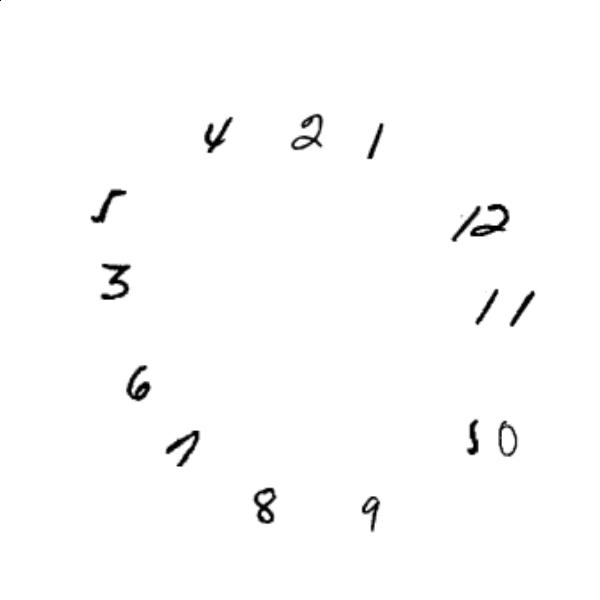 4 2 1
5 12
3 11
6
7 10
8 9